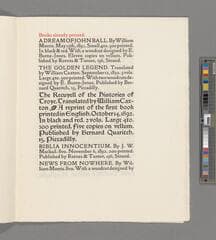 Books already printed.
A DREAM OF JOHN BALL. By William
Morris. May 13th, 1892. Small 4to. 300 printed.
In black & red. With a woodcut designed by E.
Burne-Jones. Eleven copies on vellum. Pub-
lished by Reeves & Turner, 196, Strand.
THE GOLDEN LEGEND. Translated
by William Caxton. September 12, 1892. 3 vols.
Large 4to. 500 printed. With two woodcuts de-
signed by E. Burne-Jones. Published by Ber-
nard Quaritch, 15, Piccadilly.
The Recuyell of the Histories of
Troye. Translated by William Cax-
ton. A reprint of the first book
printed in English. October 14, 1892.
In black and red. 2 vols. Large 4to.
300 printed. Five copies on vellum.
Published by Bernard Quaritch,
15, Piccadilly.
BIBLIA INNOCENTIUM. By J. W.
Mackail. 8vo. November 6, 1892. 200 printed.
Published by Reeves & Turner, 196, Strand.
NEWS FROM NOWHERE. By Wil-
liam Morris. 8vo. With a woodcut designed by